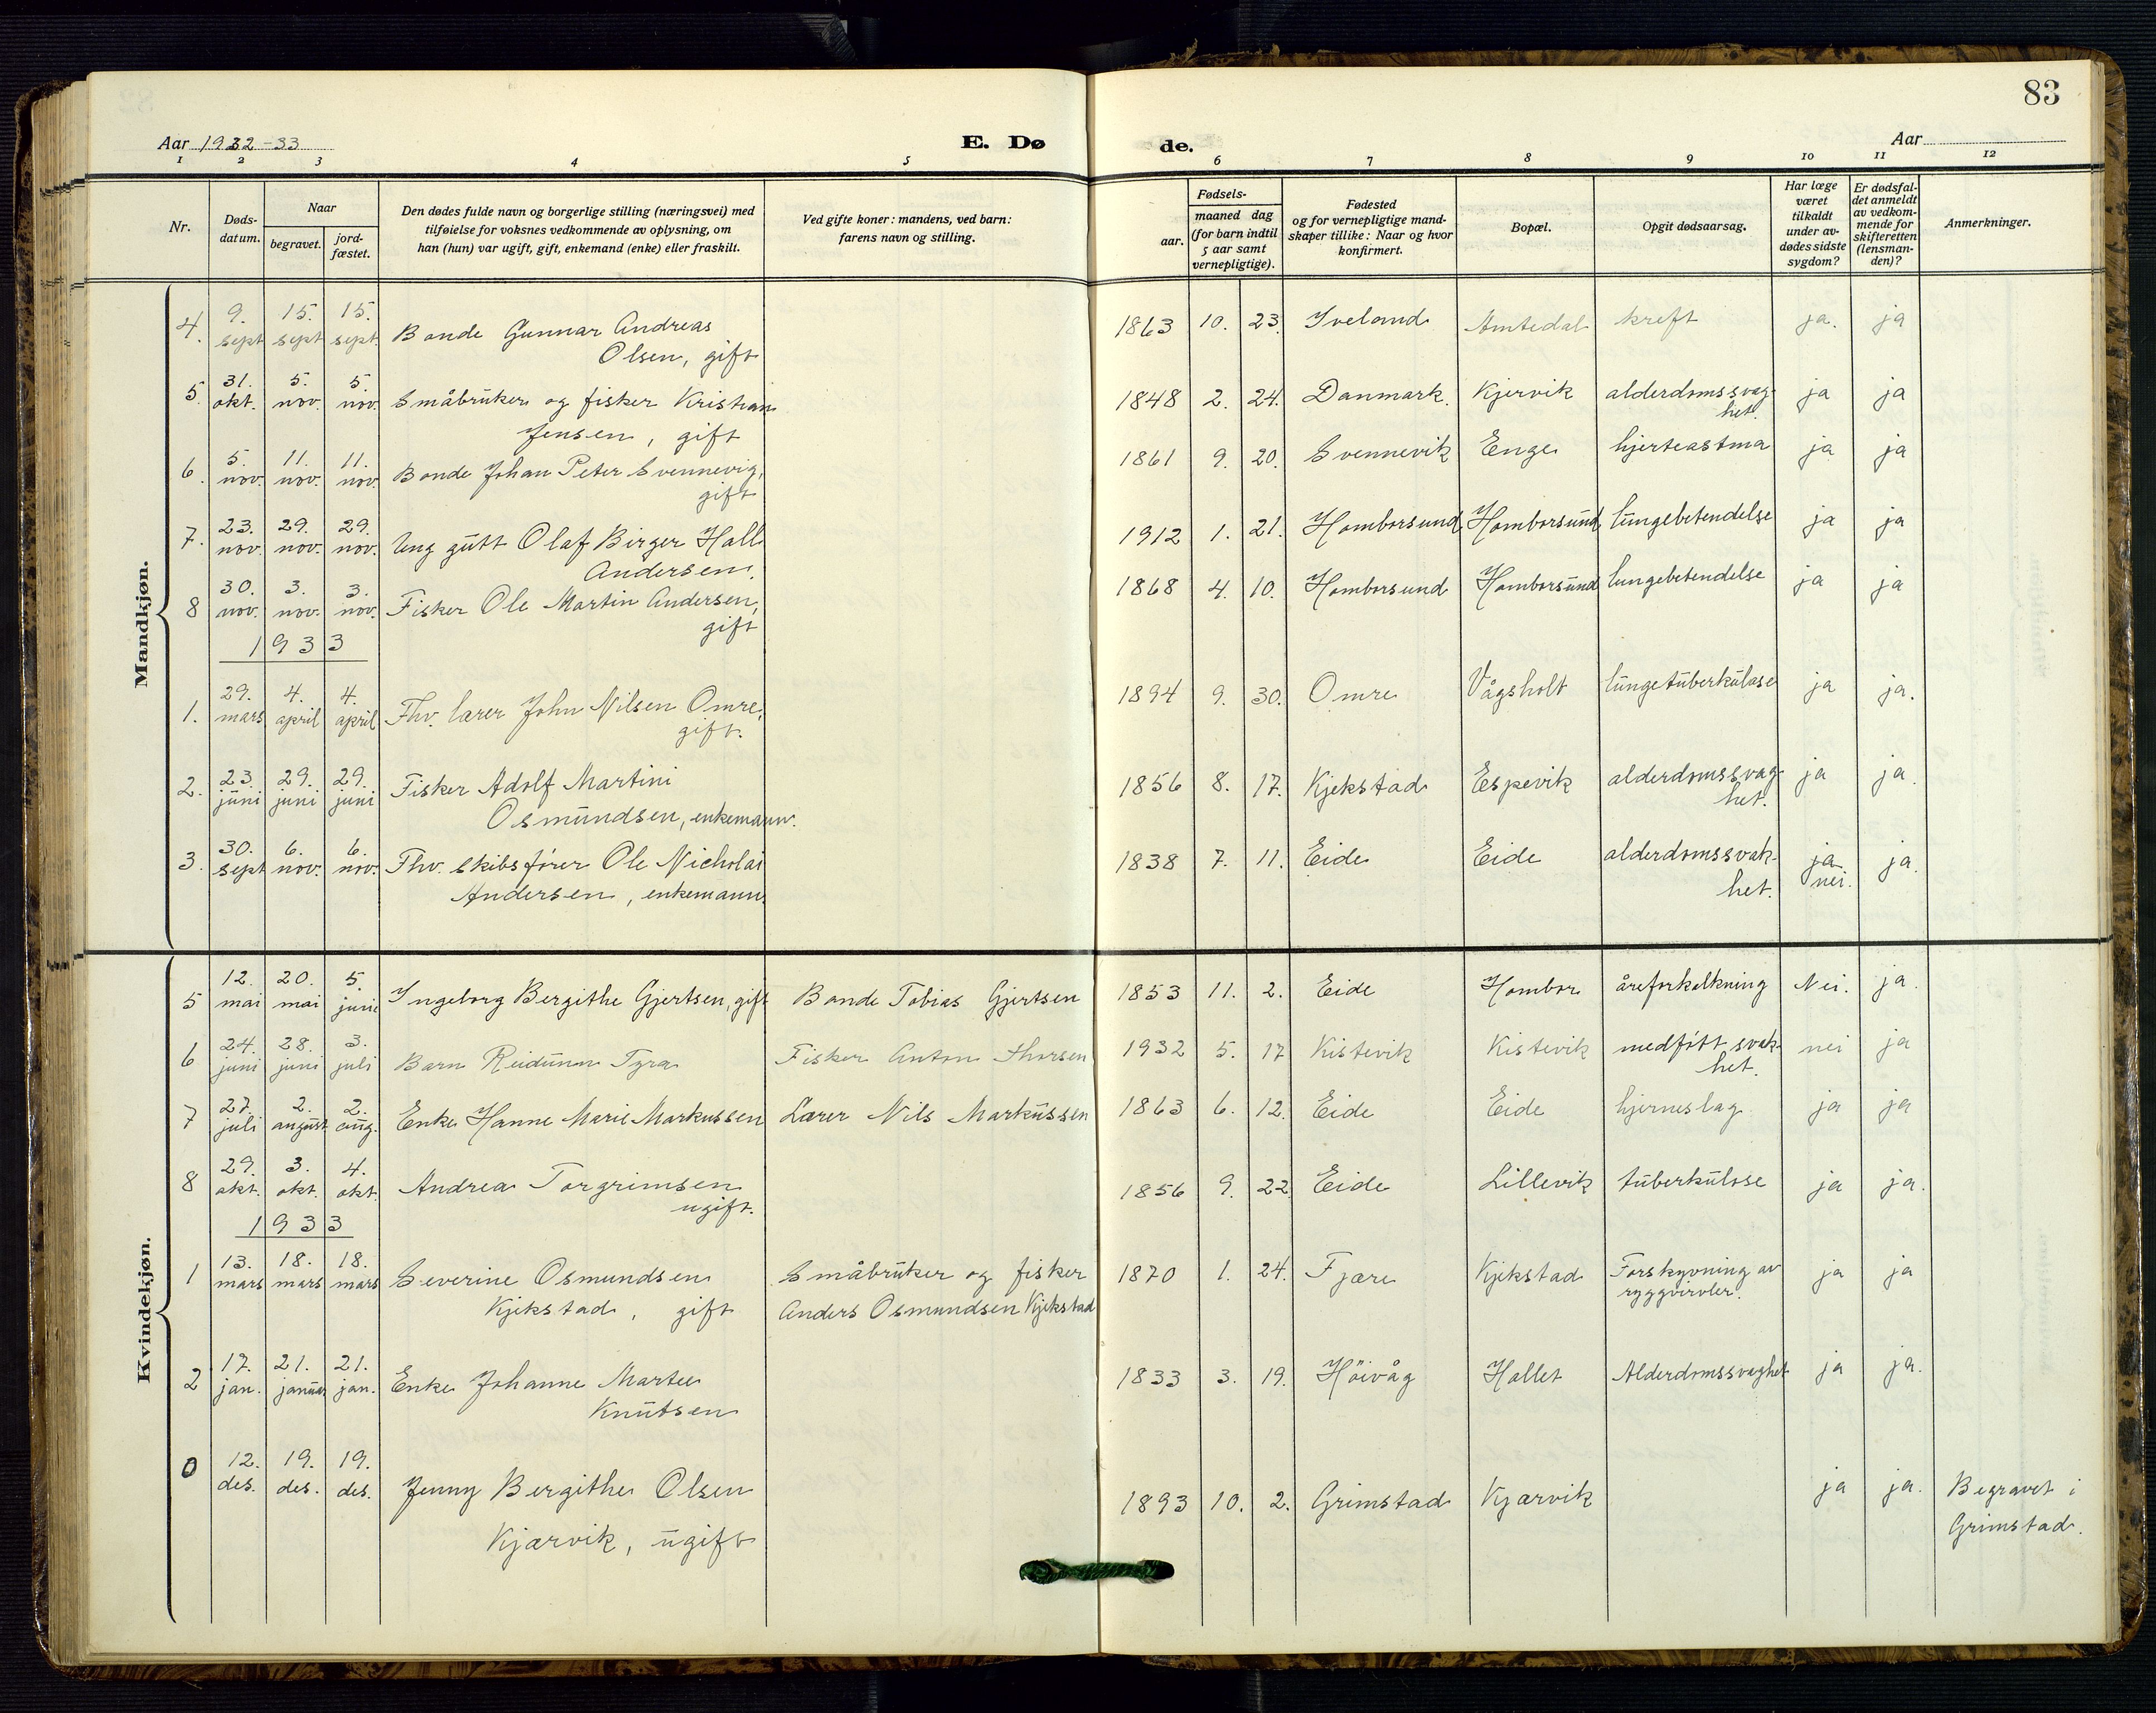 83
Aar 1932-33
E. Dø
de.
Aar
1 2 3 4 5 6 7 8 9 10 11 12
Nr.
Døds-
datum.
Naar
begravet.
jord-
fæstet.
Den dødes fulde navn og borgerlige stilling (næringsvei) med
tilføielse for voksnes vedkommende av oplysning, om
han (hun) var ugift, gift, enkemand (enke) eller fraskilt.
Ved gifte koner: mandens, ved barn:
farens navn og stilling.
Fødsels-
aar.
maaned dag
(for barn indtil
5 aar samt
vernepligtige).
Fødested
og for vernepligtige mand-
skaper tillike: Naar og hvor
konfirmert.
Bopæl.
Opgit dødsaarsag.
Har læge
været
tilkaldt
under av-
dødes sidste
sygdom?
Er dødsfal-
det anmeldt
av vedkom-
mende for
skifteretten
(lensman-
den)?
Anmerkninger.
Mandkjøn.
4. 9. sept 15. sept 15. sept. Bonde Gunnar Andreas 1863 10. 23. Iveland Amtedal kreft ja. ja
Olsen, gift
5. 31. okt. 5. nov. 5. nov. Småbruker og fisker Kristian 1848 2. 24. Danmark. Kjervik alderdomssvag- ja ja
Jensen, gift het.
6. 5. nov. 11. nov. 11. nov. Bonde Johan Peter Svennevig, 1861 9. 20. Svennevik Enge hjerteastma ja ja
gift
7. 23. nov. 29. nov. 29. nov. Ung gutt Olaf Birger Hall 1912 1. 21. Homborsund Homborsund lungebetendelse ja ja
Andersen.
8 30. nov. 3. nov. 3. nov. Fisker Ole Martin Andersen, 1868 4. 10. Homborsund Homborsund lungebetendelse ja ja
gift
1933
1. 29. mars 4. april 4. april Fhv. lærer John Nilsen Omre, 1894 9. 30. Omre Vågsholt lungetuberkulose ja ja.
gift.
2. 23. juni 29. juni 29. juni Fisker Adolf Martini 1856 8. 17. Kjekstad Espevik alderdomssvag- ja ja.
Osmundsen, enkemann. het.
3. 30. sept 6. nov. 6. nov. Fhv. skibsfører Ole Nicholai 1838 7. 11. Eide Eide alderdomssvak- ja ja.
Andersen, enkemann. het. nei.
Kvindekjøn.
5 12. mai 20. mai 5. juni Ingeborg Bergithe Gjertsen, gift Bonde Tobias Gjertsen 1853 11. 2. Eide Hombor åreforkalkning Nei. ja.
6 24. juni 28. juni 3. juli Barn Reidunn Tyra Fisker Anton Thorsen 1932 5. 17 Kistevik Kistevik medfött svak- nei ja
het.
7 27. juli 2. august 2. aug. Enke Hanne Marie Markussen Lærer Nils Markussen 1863 6. 12. Eide Eide hjerneslag ja ja
8 29. okt. 3. okt. 4. okt. Andrea Torgrimsen 1856 9. 22. Eide Lillevik tuberkulose ja ja.
ugift.
1933
1 13. mars 18. mars 18. mars Severine Osmundsen Småbruker og fisker 1870 1. 24. Fjære Kjekstad Forskyvning av ja ja
Kjekstad, gift Anders Osmundsen Kjekstad ryggvirvler.
2 17. jan. 21. januar 21. jan. Enke Johanne Martea 1833 3. 19. Höivåg Hollet Alderdomssvaghet ja ja.
Knutsen
0 12. des. 19. des. 19. des. Jenny Bergithe Olsen 1893 10. 2. Grimstad Kjærvik ja ja. Begravet i
Kjærvik, ugift Grimstad.